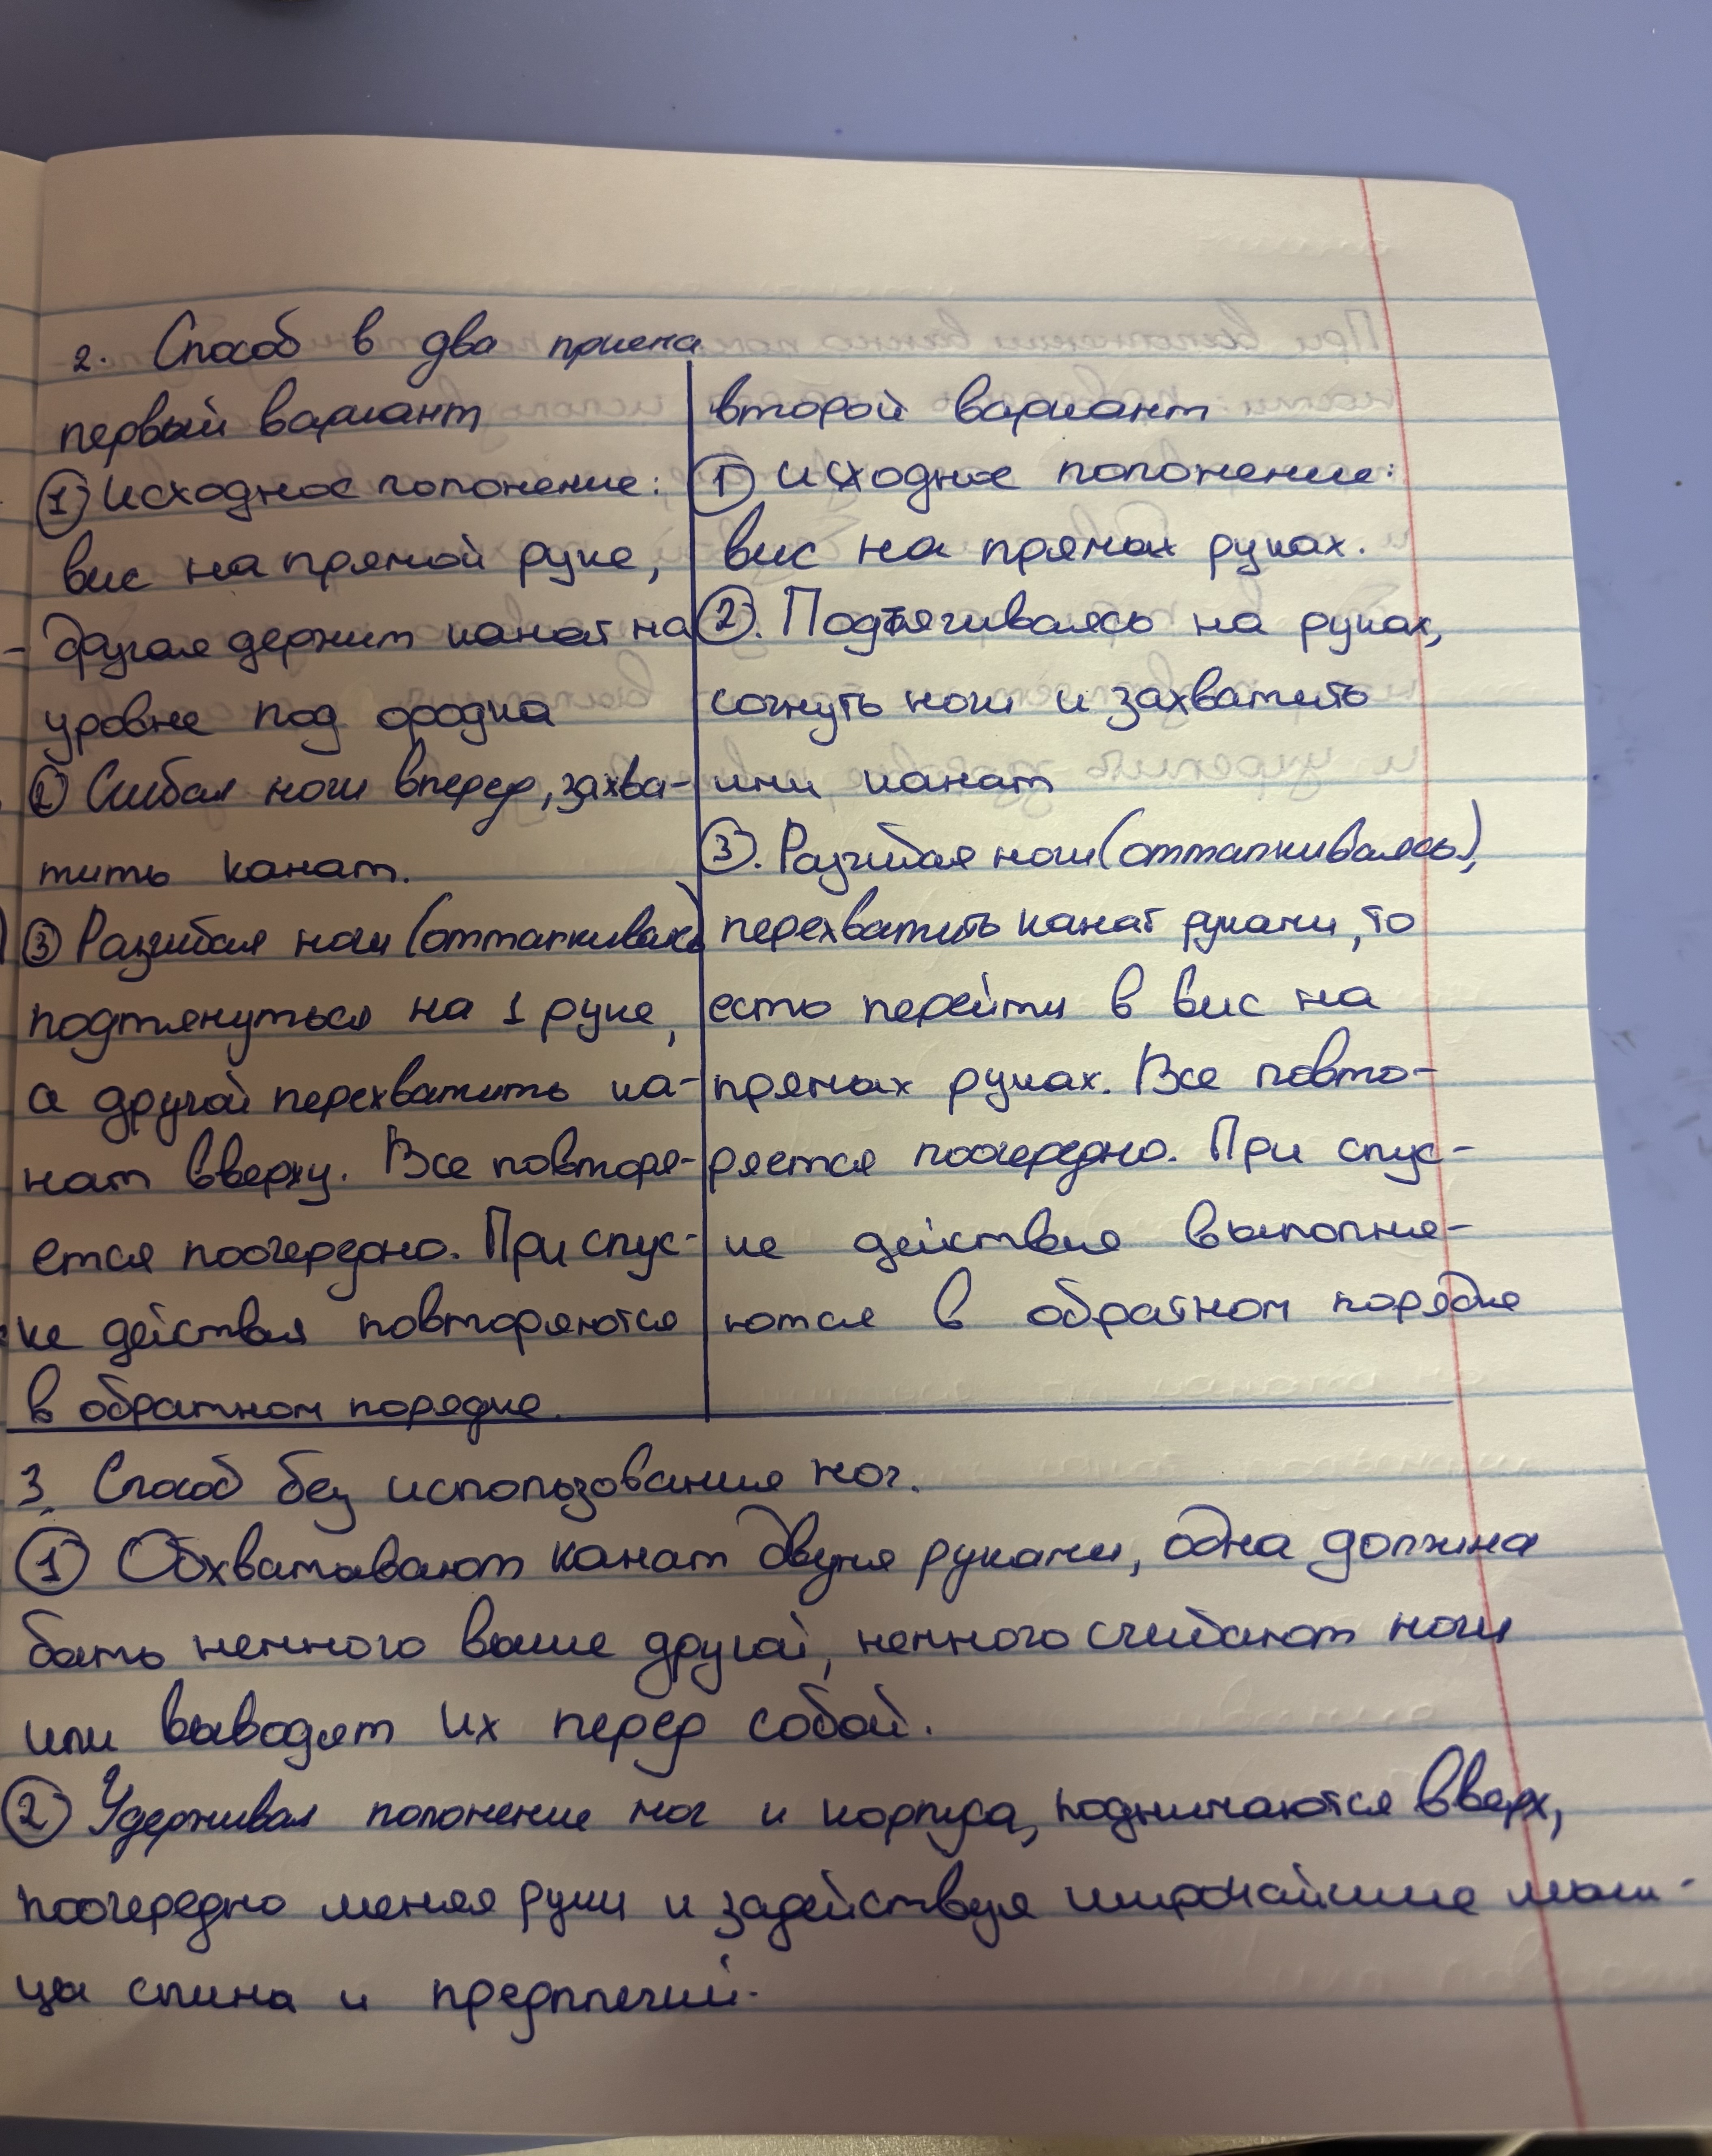 2. Способ в два приема
первый вариант
① Исходное положение:
вис на прямой руке,
другая держит канат на
уровне подбородка
② Сгибая ноги вперед, захва-
тить канат.
③ Разгибая ноги (отталкиваясь)
подтянуться на 1 руке,
а другой перехватить ка-
нат вверху. Все повторя-
ется поочередно. При спус-
ке действия повторяются
в обратном порядке.
второй вариант
① исходное положение:
вис на прямых руках.
②. Подтягиваясь на руках,
согнуть ноги и захватить
ими канат
③. Разгибая ноги (отталкиваясь),
перехватить канат руками, то
есть перейти в вис на
прямых руках. Все повто-
ряется поочередно. При спус-
ке действия выполня-
ются в обратном порядке
3. Способ без использования ног.
① Обхватывают канат двумя руками, одна должна
быть немного выше другой, немного сгибают ноги
или выводят их перед собой.
② Удерживая положение ног и корпуса, поднимаются вверх,
поочередно меняя руки и задействуя широчайшие мыш-
цы спины и предплечий.